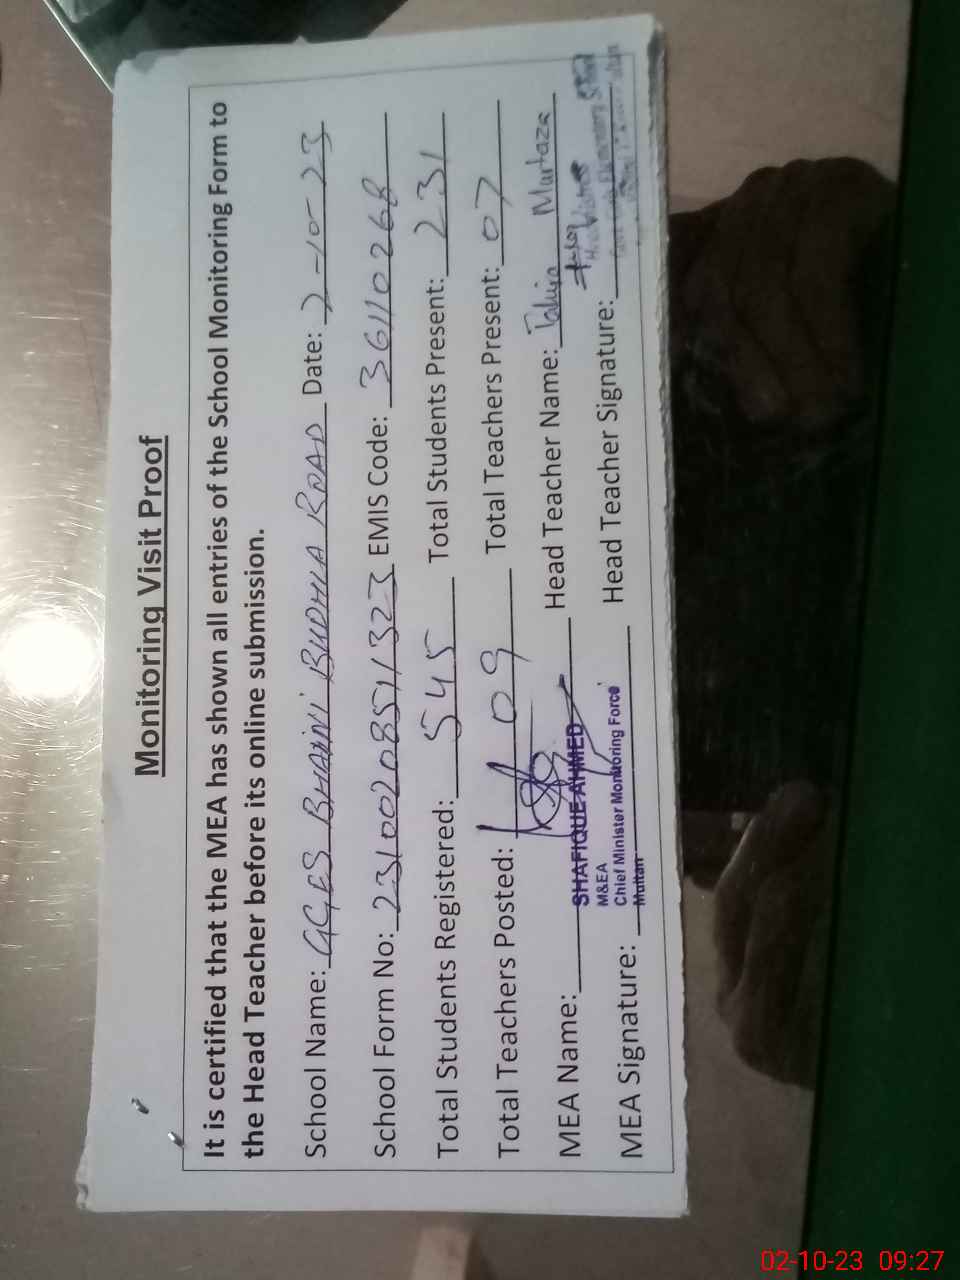 Monitoring Visit Proof
It is certified that the MEA has shown all entries of the School Monitoring Form to
the Head Teacher before its online submission.
School Name: GGES BHAINI BUDHLA ROAD Date: 2-10-23
School Form No: 2310020851323 EMIS Code: 36110268
Total Students Registered: 545 Total Students Present: 231
Total Teachers Posted: 09 Total Teachers Present: 07
MEA Name: Head Teacher Name: Tahira Murtaza
SHAFIQUE AHMED
M&EA
Chief Minister Monitoring Force
Multan
MEA Signature: Head Teacher Signature:
Elementary School
02-10-23 09:27